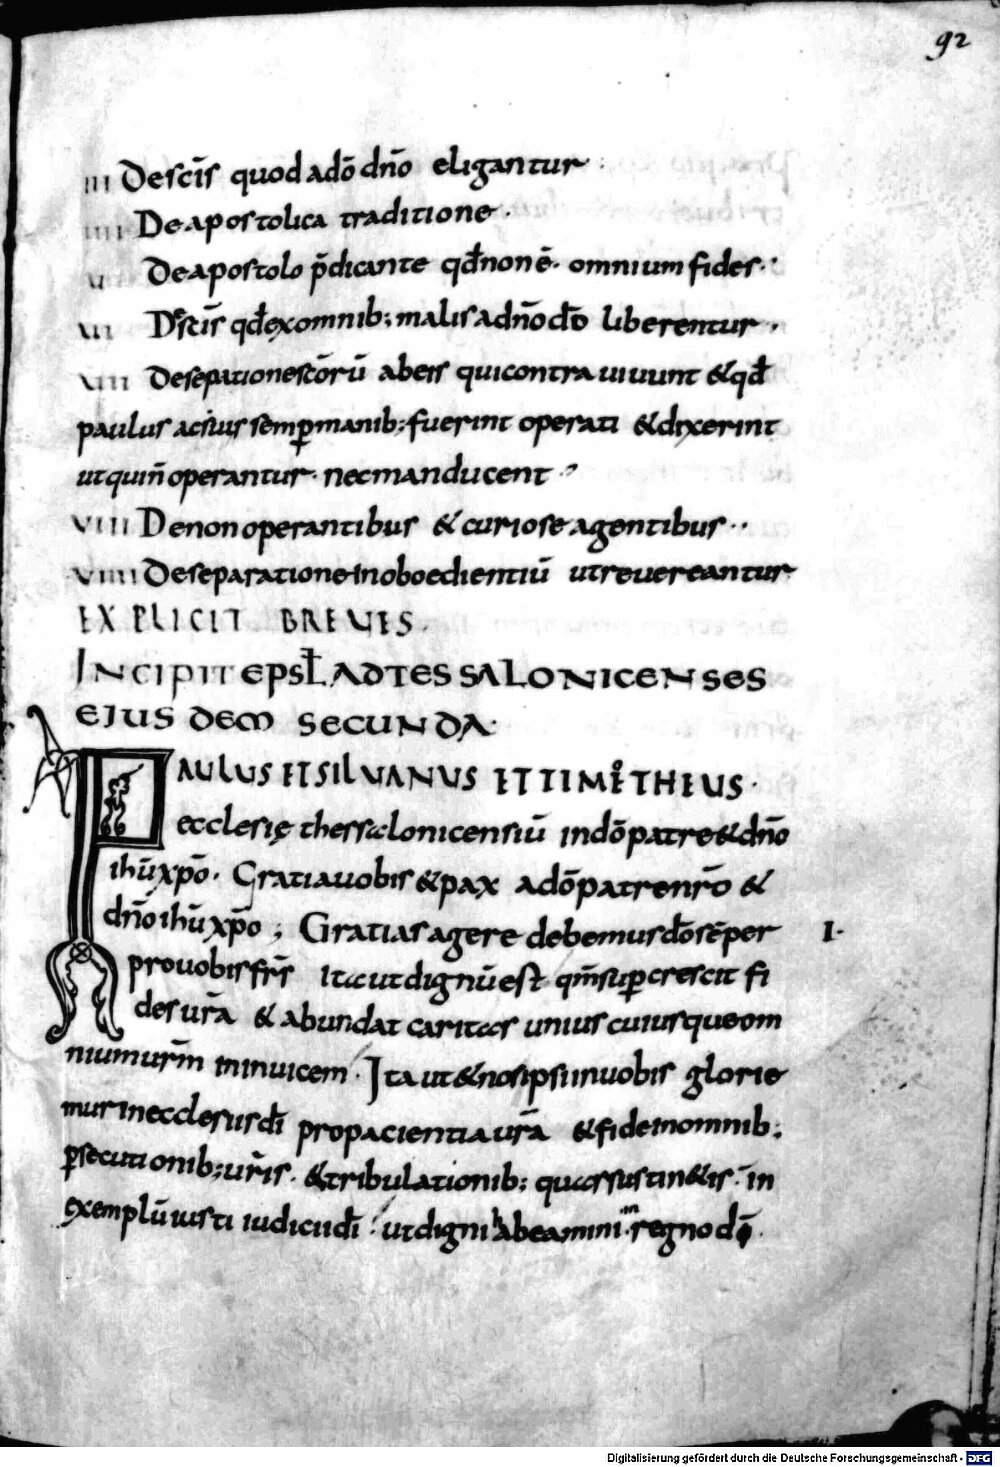 92
III De scīs quod a dō dn̄o eligantur
IIII De apostolica traditione·
V De apostolo p̄dicante qđ non ē· omnium fides·
VII De scīs qđ ex omnib; malis a dn̄o dō liberentur·
VIII De sepatione scōrū ab eis qui contra uiuunt & qđ
paulus ac sui semꝑ manib; fuerint operati & dixerint
ut qui n̄ operantur· nec manducent·
VIII De non operantibus & curiose agentibus··
VIIII De separatione inoboedientiū ut reuereantur
EXPLICIT BREUES·
INCIPIT EPSƚ AD TESSALONICENSES
EIUSDEM SECUNDA·
PAULUS ET SILUANUS ET TIMOTHEUS·
ecclesię thessalonicensiū in dō patre & dn̄o
ihū xp̄o· Gratia uobis & pax a dō patre nr̄o &
dn̄o ihū xp̄o; Gratias agere debemus dō sēper I·
pro uobis fr̄s Ita ut dignū est qm̄ suꝑcrescit fi
des ur̄a & abundat caritas unius cuiusque om
nium ur̄m in inuicem· Ita ut & nos ipsi in uobis glorie
mur in ecclesiis dī pro pacientia ur̄a & fide in omnib;
ꝑsecutionib; ur̄is· & tribulationib; quas sustin&is· in
exemplū iusti iudicii dī· ut digni habeamini in regno dī·
Digitalisierung gefördert durch die Deutsche Forschungsgemeinschaft - DFG